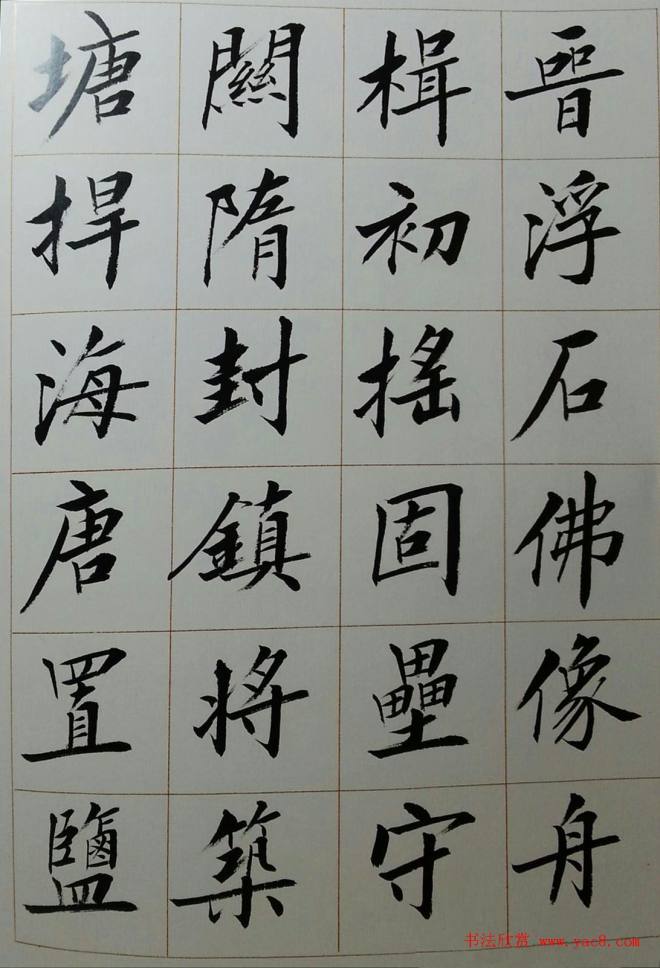 晉浮石佛像舟
楫初搖固壘守
關隋封鎮將築
塘捍海唐置鹽
书法欣赏 www.yac8.com